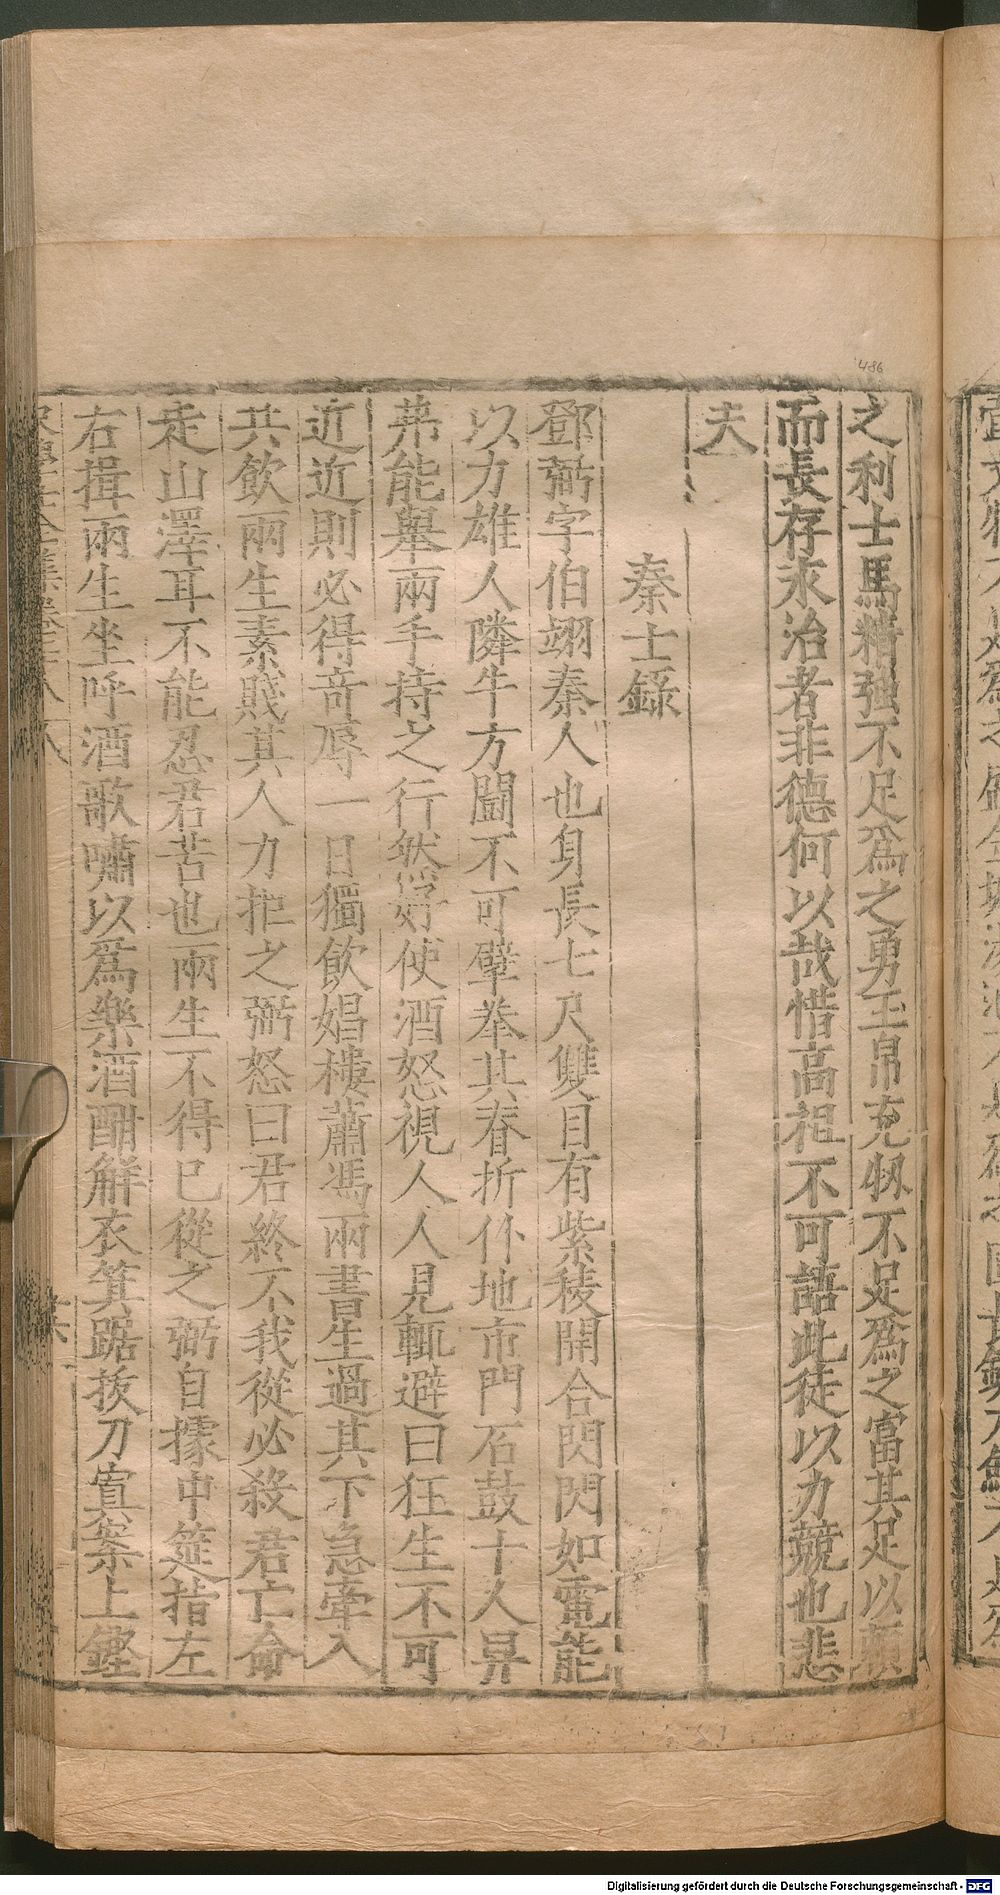 之利士馬精強不足爲之勇玉帛充牣不足爲之富其足以頼
而長存求治者非德何以哉惜高祖不可語此徒以力競也悲
夫
秦士録
鄧弼字伯翊秦人也身長七尺雙目有紫稜開合閃閃如電能
以力雄人隣牛方鬭不可擘拳其脊折仆地市門石鼓十人舁
弗能舉兩手持之行然好使酒怒視人人見輒避曰狂生不可
近近則必得竒辱一日獨飲娼樓蕭馮兩書生過其下急牽入
共飲兩生素賤其人力拒之弼怒曰君終不我從必殺君亡命
走山澤耳不能忍君苦也兩生不得已從之弼自據中筵指左
右揖兩生坐呼酒歌嘯以爲樂酒酣解衣箕踞拔刀寘案上鏗
486
Digitalisierung gefördert durch die Deutsche Forschungsgemeinschaft - DFG